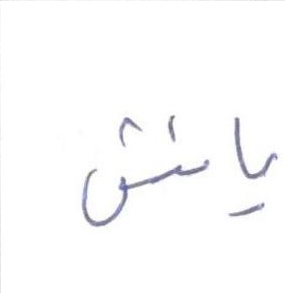 يانش